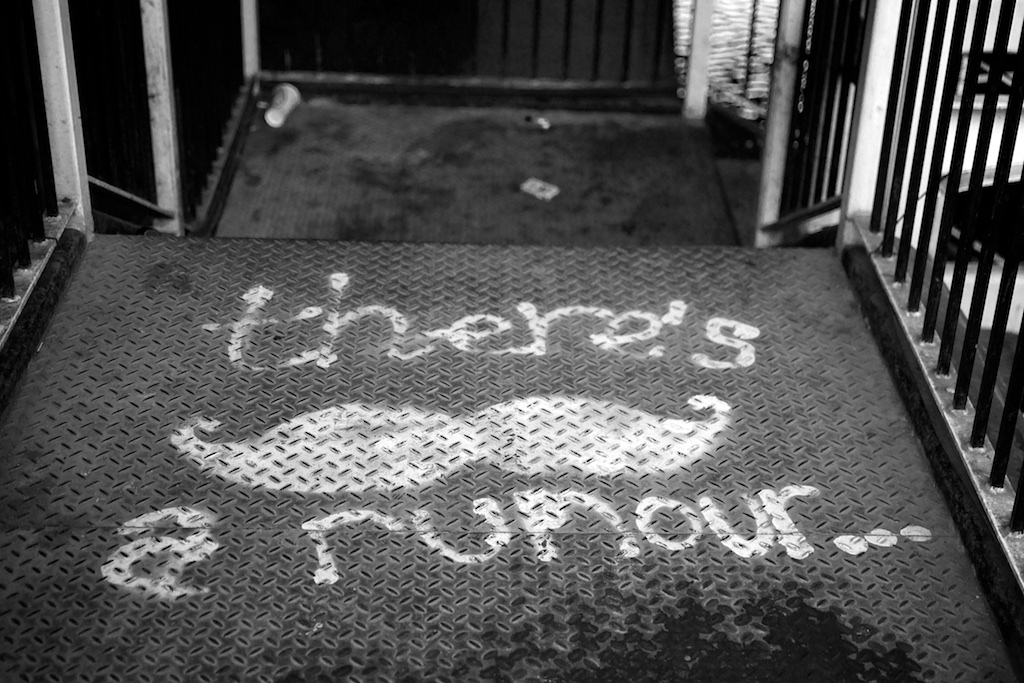 there's
a runour...